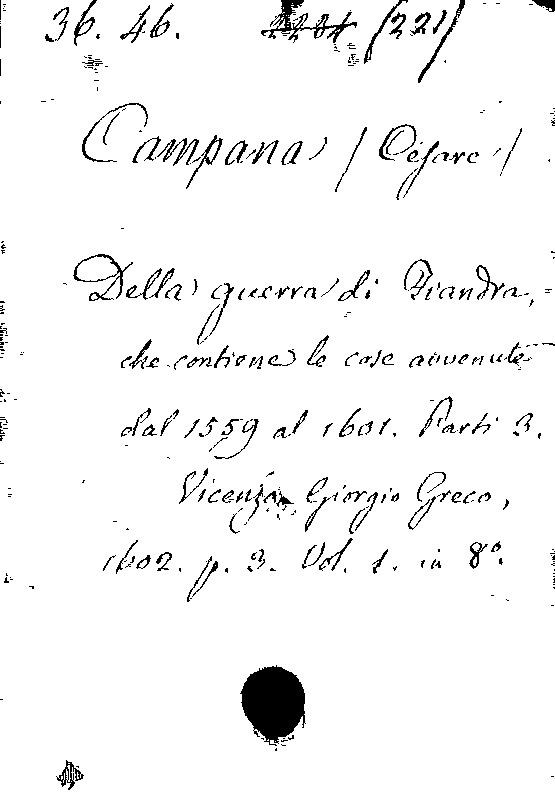 36. 46. (221)
Campana / Cesare /
Della guerra di Fiandra,
che contiene le cose avvenute
dal 1559 al 1601. Parti 3.
Vicenza, Giorgio Greco,
1602. p. 3. Vol. 1. in 8º.